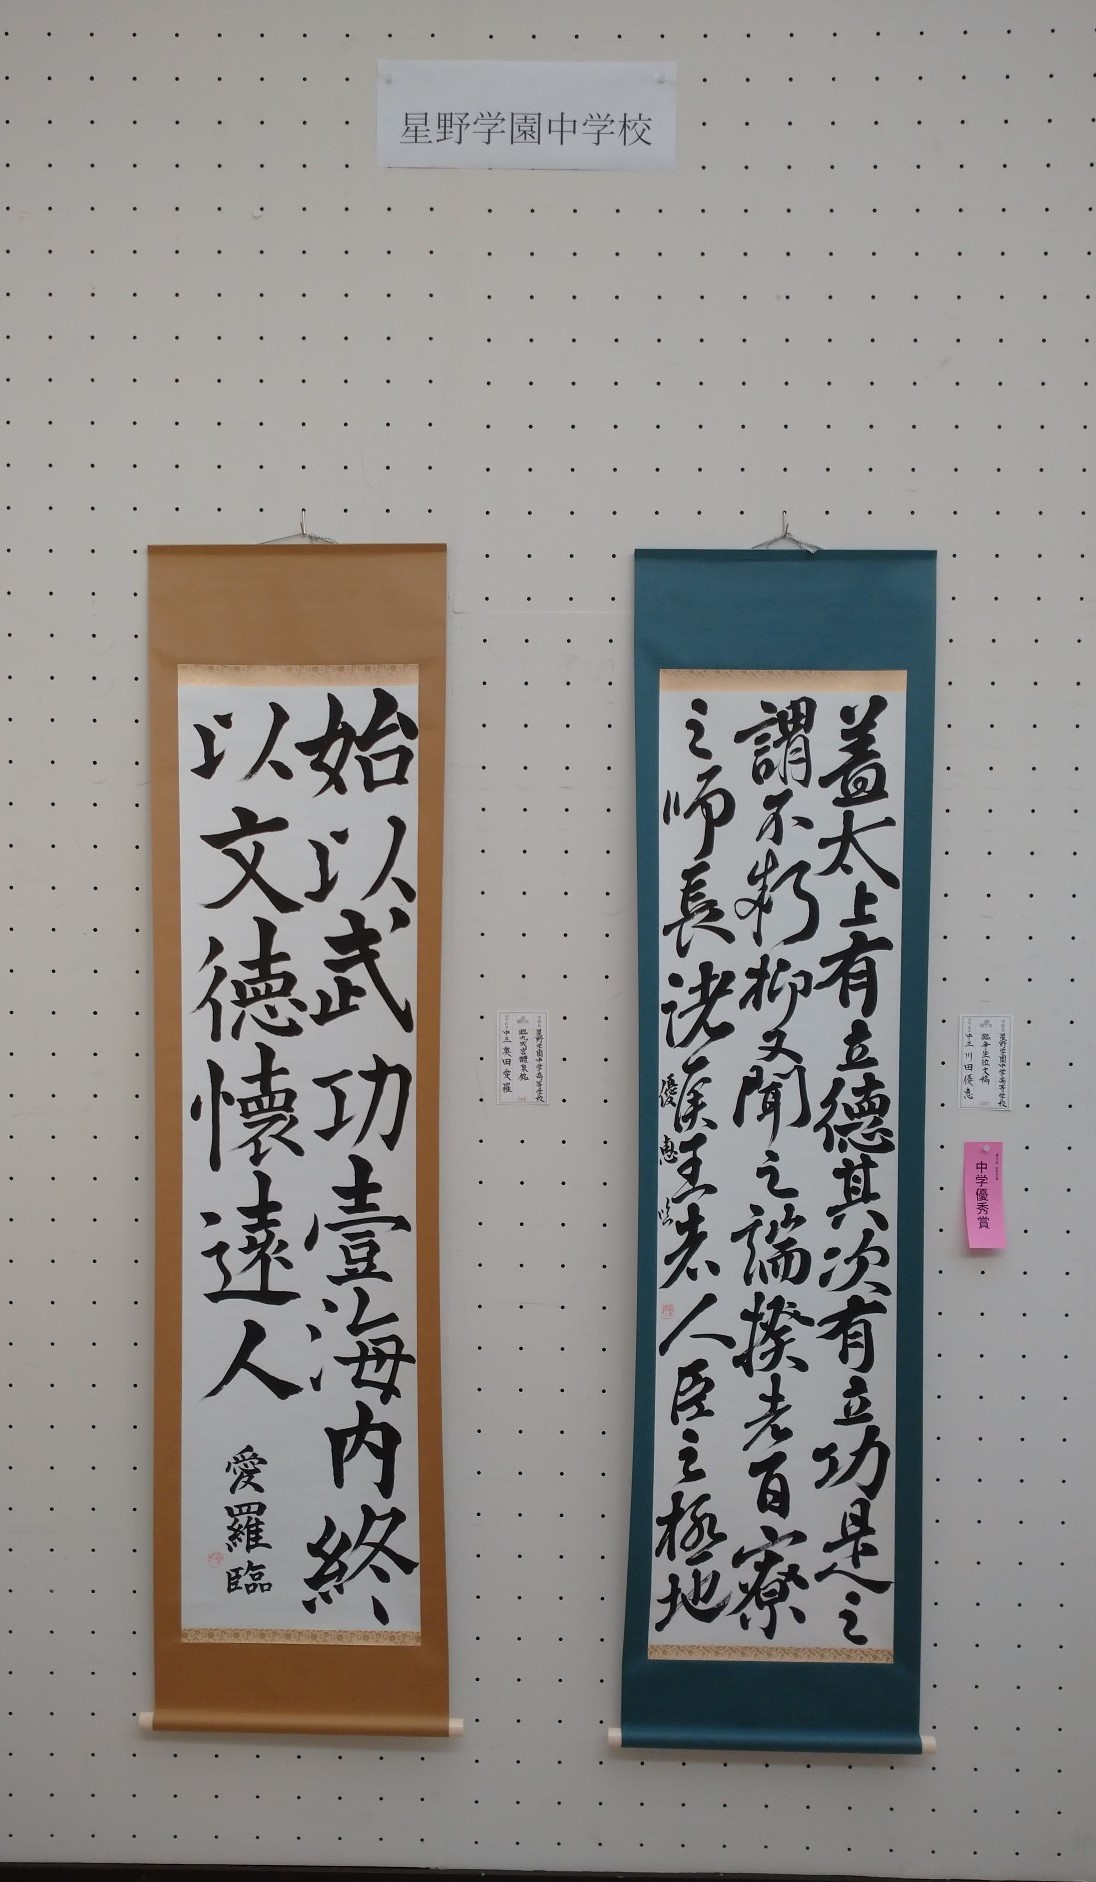 星野学園中学校
蓋太上有立德其次有立功是之
謂不朽抑又聞之端揆者百寮
之師長諸侯王者人臣之極地
優恵臨
星野学園中学高等学校
臨争坐位文稿
中三 川田優恵
中学優秀賞
始以武功壹海内終
以文徳懐遠人
愛羅臨
星野学園中学高等学校
臨九成宮醴泉銘
中三 奥田愛羅